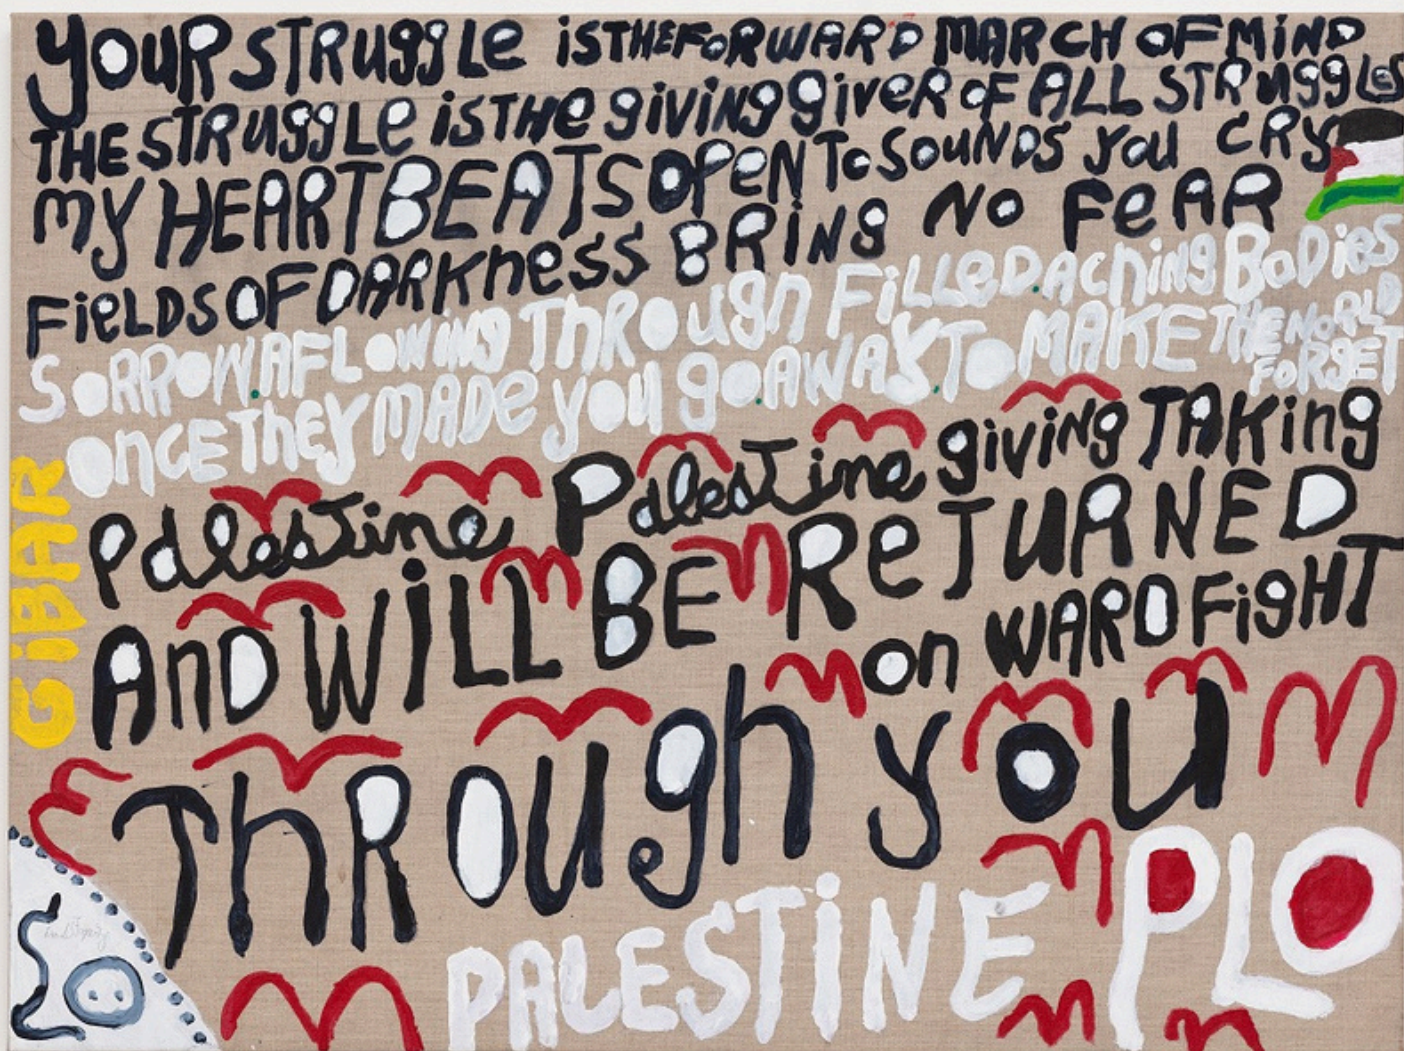 YOUR STRUggLe iSTHEFORWARD MARCH OF MiND
THE STRUggLe iSTHe giViNg giveR OF ALL STRUggLeS
MY HEARTBEATS OPeN To SOUNDS YoU CRY
FieLDS OF DARKneSS BRiNg NO FeAR
SORROW.AFLOWiNg ThROUgh FiLLeD.AChiNg BODieS
OnCE TheY MADe yOU gO.AWAY.TO MAKE THE WORLD
FORgET
PalesTine PalesTine giviNg TAKing
AnD WiLL BE ReTURNED
On WARD FigHT
ThROUgh yOU
PALESTiNE PLO
GiBAR